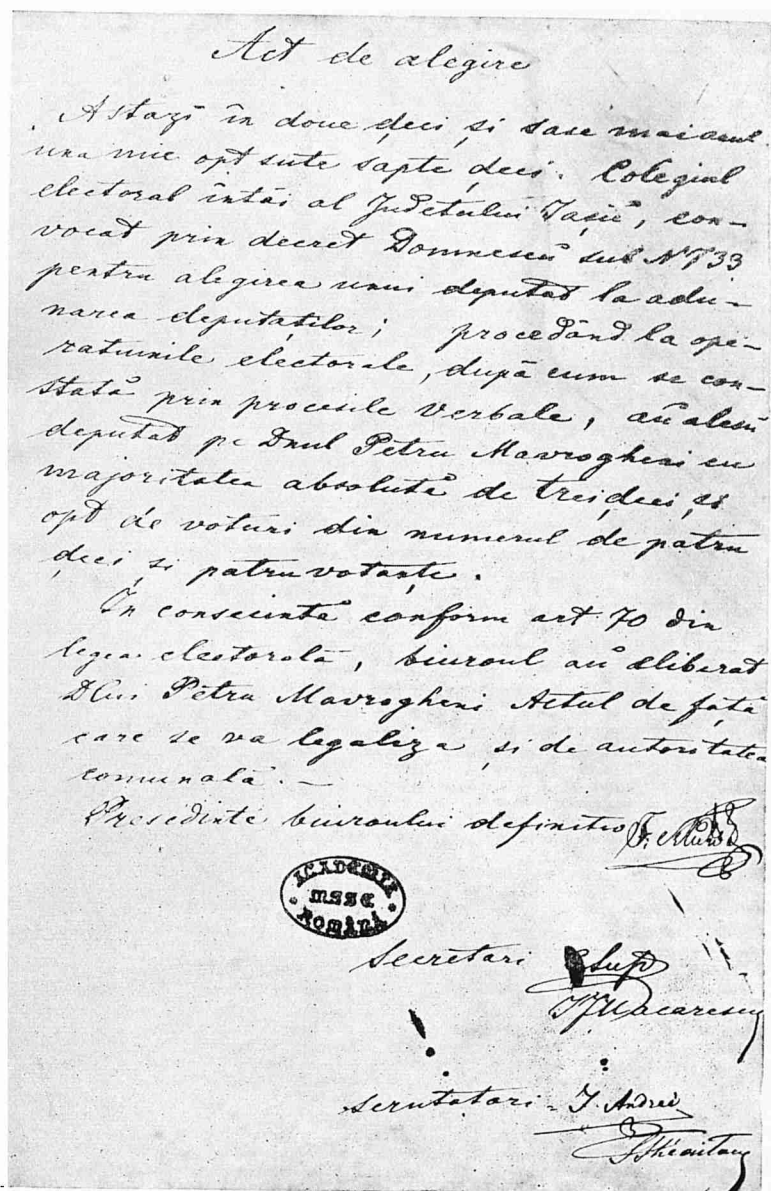 Act de alegire
Astazĭ în doue deci și sase mai anul
una mie opt sute sapte deci. Colegiul
electoral întâi al Județului Iașiĭ, con-
vocat prin decret Domnescŭ sub Nº 733
pentru alegirea unui deputat la adu-
narea deputaților; procedând la ope-
ratiunile electorale, după cum se con-
stată prin procesile verbale, aŭ alesŭ
deputat pe Dnul Petru Mavrogheni cu
majoritatea absolută de trei deci și
opt de voturi din numerul de patru
deci și patru votanțe.
In consecintă conform art 70 din
legea electorală, biuroul aŭ eliberat
Dlui Petru Mavrogheni Actul de față
care se va legaliza și de autoritatea
comunală. —
Presedinte biuroului definitiv
ACADEMIA
MSSE
ROMÂNĂ
Secretari
Macarescu
Scrutatori - I. Andrei